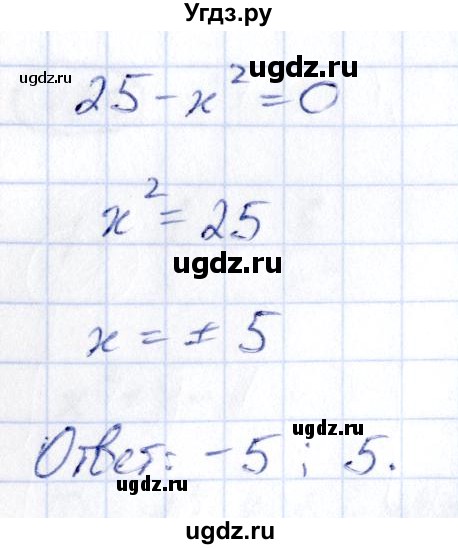 Угдз.ру
ugdz.ru
ugdz.ru
25 - x² = 0
x² = 25
ugdz.ru
ugdz.ru
x = ± 5
Ответ: -5; 5.
ugdz.ru
ugdz.ru
ugdz.ru